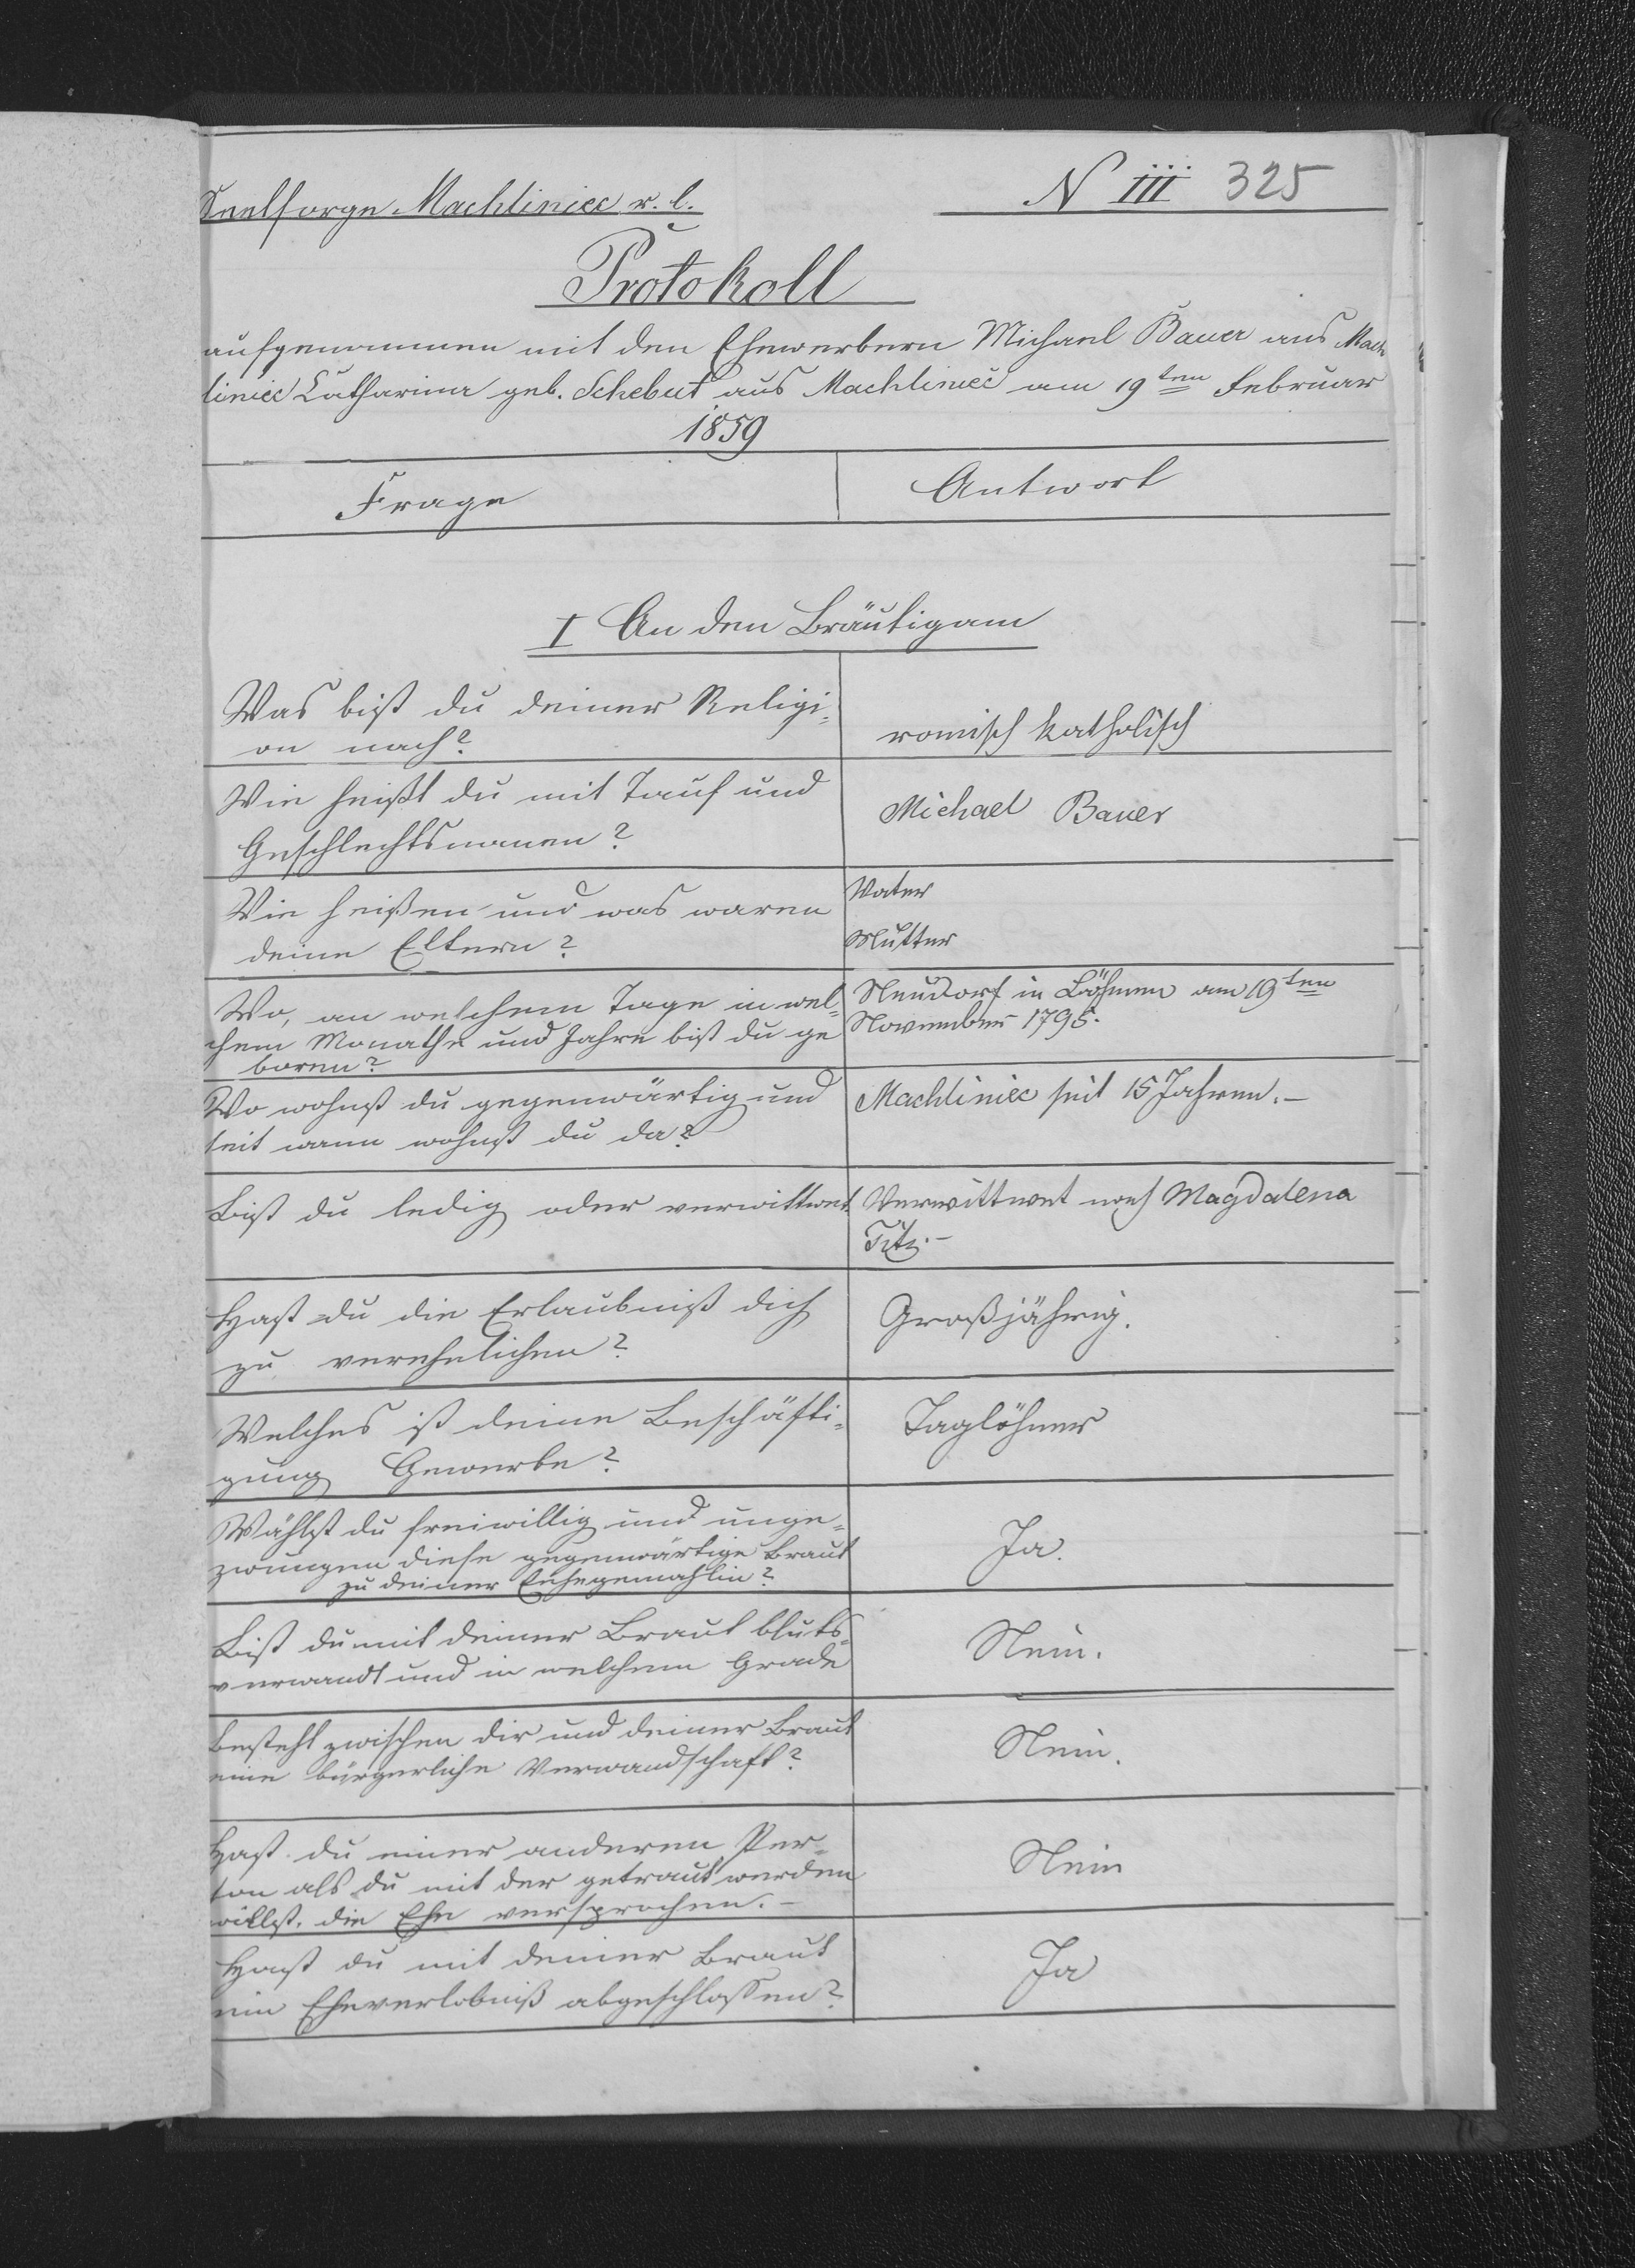 Seelsorge Machliniec r. l.
N III 325
Protokoll
aufgenommen mit den Ehewerbern Michael Bauer aus Mach
liniec Catharina geb. Schebut aus Machliniec am 19ten Februar
1859
Frage
Antwort
I An den Bräutigam
Was bist du deiner Religi-
on nach?
romisch katholisch
Wie heißt du mit Tauf und
Geschlechtsnamen?
Michael Bauer
Wie heißen und was waren
deine Eltern?
Vater
Mutter
Wo, an welchem Tage in wel-
chem Monathe und Jahre bist du ge
boren?
Neudorf in Böhmen am 19ten
November 1795.
Wo wohnst du gegenwärtig und
seit wann wohnst du da?
Machliniec seit 15 Jahren.-
Bist du ledig oder verwittwet
Verwittwet nach Magdalena
Titz.-
Hast du die Erlaubniß dich
zu verehelichen?
Großjährig.
Welches ist deine Beschäfti-
gung Gewerbe?
Taglöhner
Wählst du freiwillig und unge-
zwungen diese gegenwärtige Braut
zu deiner Ehegemahlin?
Ja.
Bist du mit deiner Braut bluts-
verwandt und in welchem Grade
Nein.
Besteht zwischen dir und deiner Braut
eine bürgerliche Verwandschaft?
Nein.
Hast du einer anderen Per-
son als du mit der getraut werden
willst. die Ehe versprochen.-
Nein
Hast du mit deiner Braut
ein Eheverlobniß abgeschlossen?
Ja